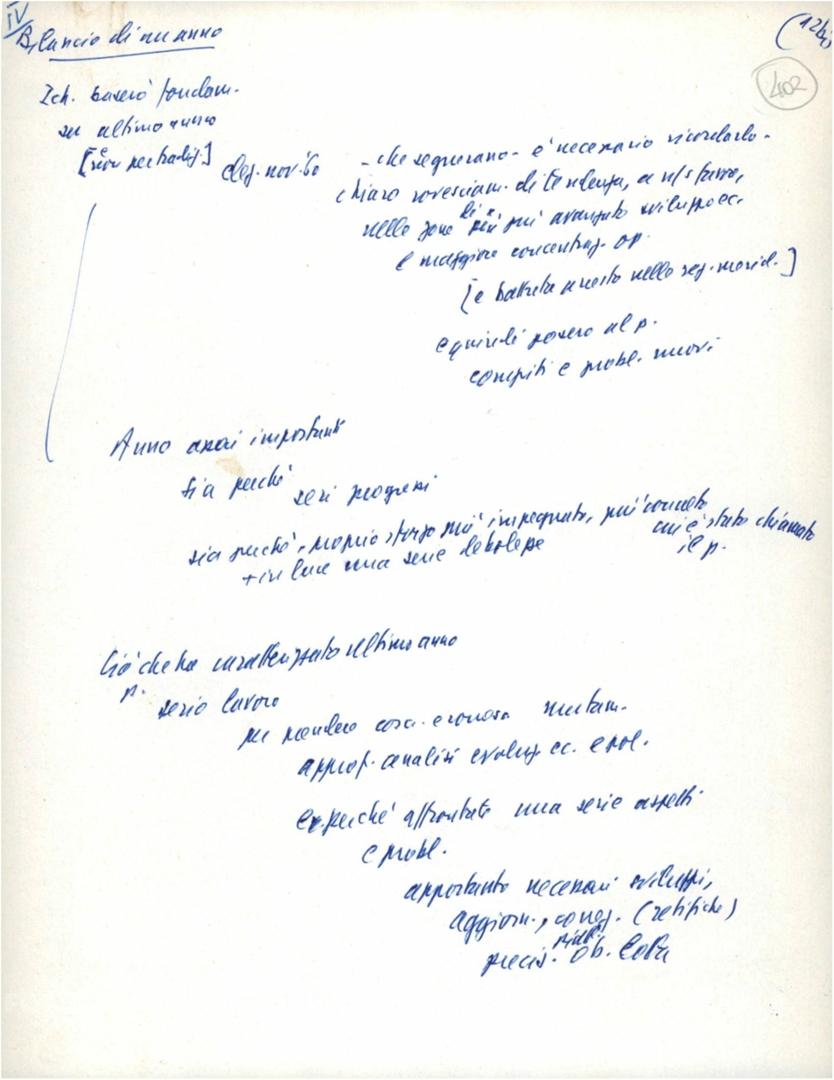 IV
Bilancio di un anno
(12bis
402
Ich. baserò fondam.
su ultimo anno
[e non per tradiz.] elez. nov. 60
- che segnarono - è necessario ricordarlo -
chiaro rovesciam. di tendenza, a ns/ favore,
nelle zone di più avanzato sviluppo ec.
e maggiore concentraz. op.
[e battuta arresto nelle reg. merid.]
e quindi posero al p.
compiti e probl. nuovi
Anno assai importante
sia perché seri progressi
sia perché, proprio sforzo più impegnato, più concreto
cui è stato chiamato
il p.
+ in luce una serie debolezze
Ciò che ha caratterizzato ultimo anno
p. serio lavoro
per prendere mutam.
approf. analisi evoluz. ec. e pol.
e perché affrontate una serie aspetti
e probl.
apportanto necessari sviluppi,
aggiorn., correz. (retifiche)
precis. ob. lotta